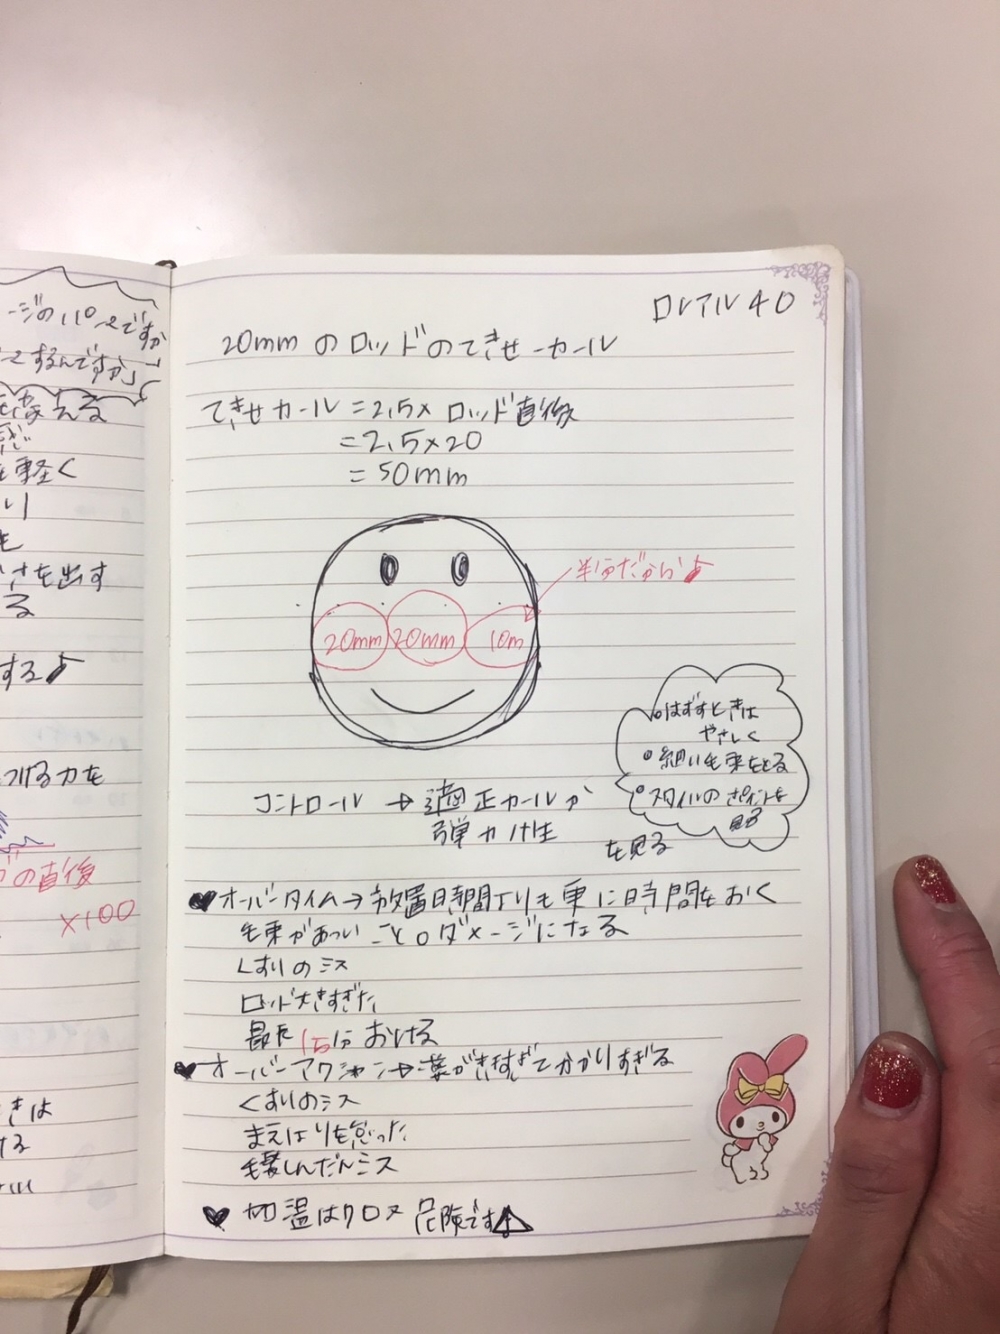 ージのパーマですか
ーマするんですか」
を変える
を軽く
さを出す
る
する♪
つける力を
の直後
×100
きは
ロレアル40
20mmのロッドのてきせーカール
てきせカール=2.5×ロッド直後
=2.5×20
=50mm
半分だから♪
20mm 20mm 10m
○はずすときは
やさしく
○細い毛束をとる
○スタイルのポイントを
見る
コントロール→適正カールか
弾力性
を見る
♥オーバータイム→放置日時間よりも更に時間をおく
毛束があつい ことロダメージになる
くすりのミス
ロッド大きすぎた
最大15分おける
♥オーバーアクション→薬がきすぎてかかりすぎる
くすりのミス
まえはりを怠った
毛髪しんだんミス
♥加温はクロス 危険です⚠